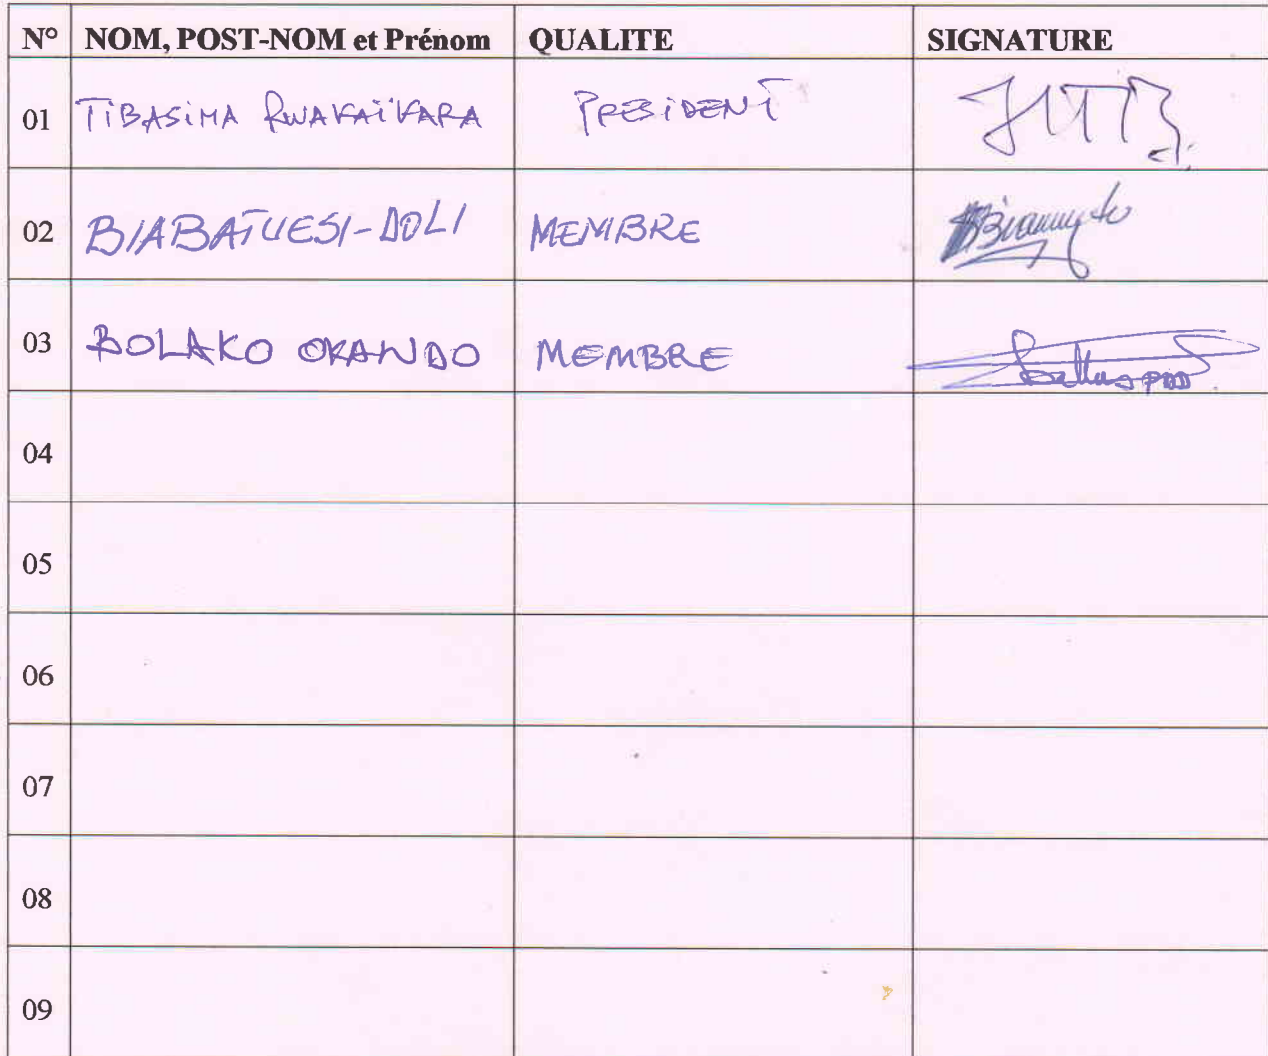 N° NOM, POST-NOM et Prénom QUALITE SIGNATURE
01 TIBASIMA RWAKAÏKARA PRESIDENT
02 BIABATUESI-DOLI MEMBRE
03 BOLAKO OKANDO MEMBRE
04
05
06
07
08
09